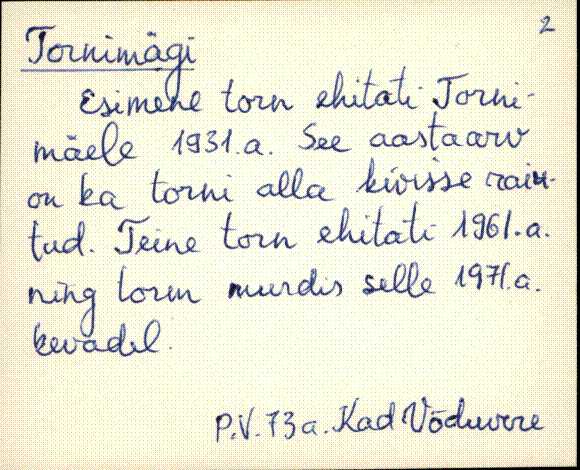 2
Tornimägi
Esimene torn ehitati Torni-
mäele 1931.a. See aastaarv
on ka torni alla kivisse raiu-
tud. Teine torn ehitati 1961.a.
ning torm murdis selle 1971.a.
kevadel.
P.V. 73 a. Kad Võduvere